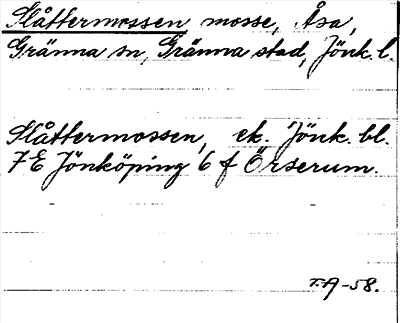 Slåttermossen mosse, Åsa,
Gränna sn, Gränna stad, Jönk. l.
Slåttermossen, ek. Jönk. bl.
7E Jönköping 6 f Örserum.
T.A-58.